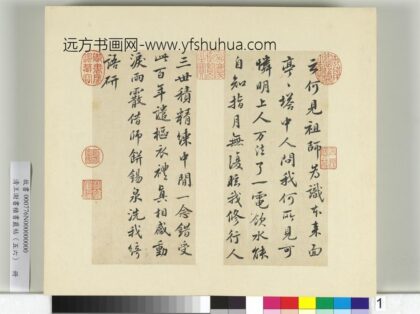 远方书画网-www.yfshuhua.com
云何見祖師為識本來面
亭〻塔中人問我何所見可
憐明上人万法了一電飲水能
自知指月無復眩我修行人
三世積精練中間一念錯受
此百年譴摳衣禮真相感動
淚雨霰借師缾錫泉洗我綺
語研
1